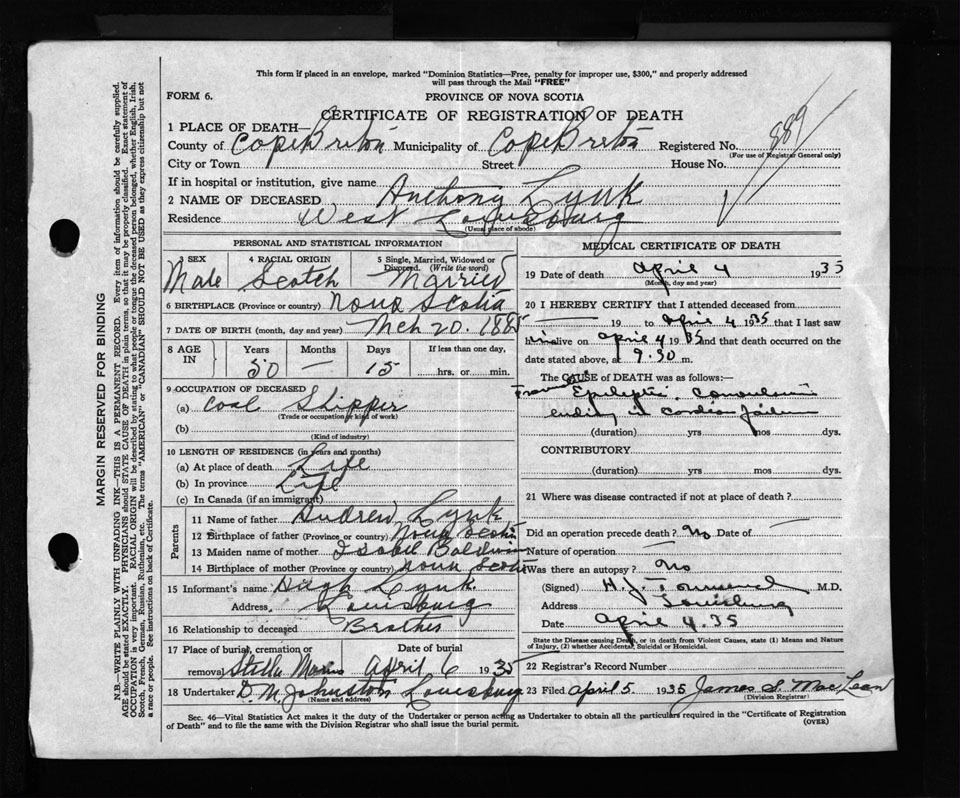 This form if placed in an envelope, marked "Dominion Statistics—Free, penalty for improper use, $300," and properly addressed
will pass through the Mail "FREE"
FORM 6.
PROVINCE OF NOVA SCOTIA
CERTIFICATE OF REGISTRATION OF DEATH
1 PLACE OF DEATH—
County of Cape Breton Municipality of Cape Breton Registered No. 889
(For use of Registrar General only)
City or Town Street House No.
If in hospital or institution, give name
2 NAME OF DECEASED Anthony Lynk
Residence West Louisburg
(Usual place of abode)
PERSONAL AND STATISTICAL INFORMATION
3 SEX 4 RACIAL ORIGIN 5 Single, Married, Widowed or Divorced. (Write the word)
Male Scotch Married
6 BIRTHPLACE (Province or country) Nova Scotia
7 DATE OF BIRTH (month, day and year) Mch 20. 1885
8 AGE IN Years Months Days If less than one day,
50 — 15 hrs. or min.
9 OCCUPATION OF DECEASED
(a) Coal Shipper
(Trade or occupation or kind of work)
(b)
(Kind of industry)
10 LENGTH OF RESIDENCE (in years and months)
(a) At place of death Life
(b) In province Life
(c) In Canada (if an immigrant)
Parents
11 Name of father Andrew Lynk
12 Birthplace of father (Province or country) Nova Scotia
13 Maiden name of mother Isabel Baldwin
14 Birthplace of mother (Province or country) Nova Scotia
15 Informant's name Hugh Lynk
Address Louisburg
16 Relationship to deceased Brother
17 Place of burial, cremation or Date of burial
removal Stella Maris April 6 1935
18 Undertaker D. M. Johnston Louisburg
(Name and address)
MEDICAL CERTIFICATE OF DEATH
19 Date of death April 4 1935
(Month, day and year)
20 I HEREBY CERTIFY that I attended deceased from
19 to April 4 1935 that I last saw
him alive on April 4 1935 and that death occurred on the
date stated above, at 9.30 m.
The CAUSE of DEATH was as follows:—
Epileptic Convulsions
ending in cardiac failure
(duration) yrs mos dys.
CONTRIBUTORY
(duration) yrs mos dys.
21 Where was disease contracted if not at place of death?
Did an operation precede death? No Date of —
Nature of operation —
Was there an autopsy? No
(Signed) H. J. Townsend M.D.
Address Louisburg
Date April 4. 35
State the Disease causing Death, or in death from Violent Causes, state (1) Means and Nature
of Injury, (2) whether Accidental, Suicidal or Homicidal.
22 Registrar's Record Number
23 Filed April 5. 1935 James S. MacLean
(Division Registrar)
Sec. 46—Vital Statistics Act makes it the duty of the Undertaker or person acting as Undertaker to obtain all the particulars required in the "Certificate of Registration
of Death" and to file the same with the Division Registrar who shall issue the burial permit.
(OVER)
MARGIN RESERVED FOR BINDING
N.B.—WRITE PLAINLY WITH UNFADING INK—THIS IS A PERMANENT RECORD. Every item of information should be carefully supplied.
AGE should be stated EXACTLY. PHYSICIANS should STATE CAUSE OF DEATH in plain terms, so that it may be properly classified. Exact statement of
OCCUPATION is very important. RACIAL ORIGIN will be described by stating to what people or tongue the deceased person belonged, whether English, Irish,
Scotch, French, German, Russian, Ruthenian, etc. The terms "AMERICAN" or "CANADIAN" SHOULD NOT BE USED as they express citizenship but not
a race or people. See instructions on back of Certificate.